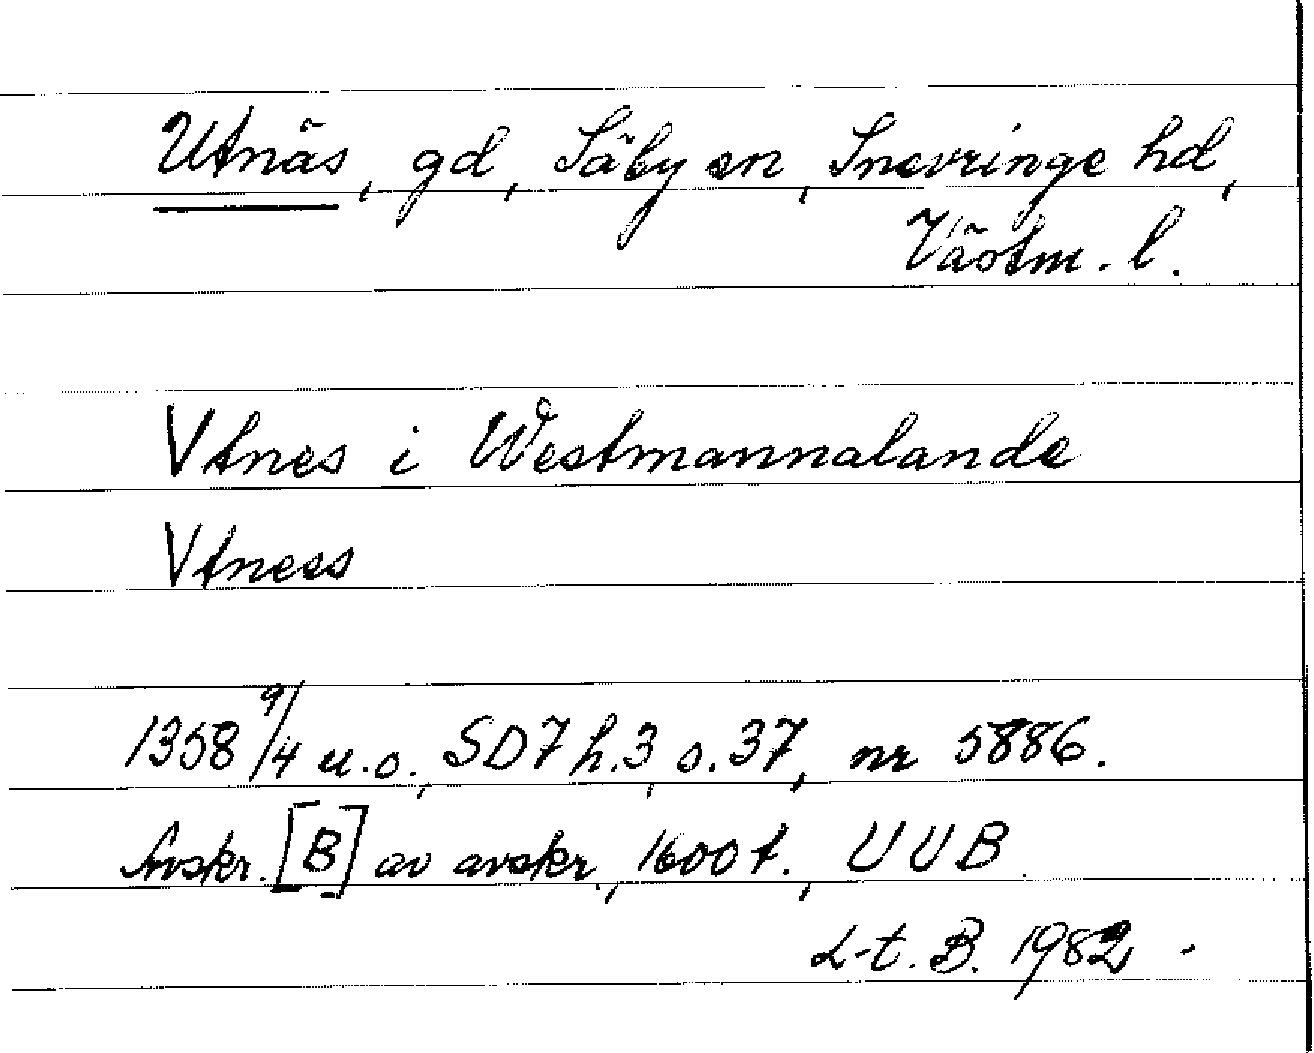 Utnäs, gd, Säby sn, Snevringe hd,
Västm. l.
Vtnes i Westmannalande
Vtness
1358 9/4 u.o., SD7 h.3, s.37, nr 5886.
Avskr. [B] av avskr., 1600 t., UUB
L-t. B. 1982.